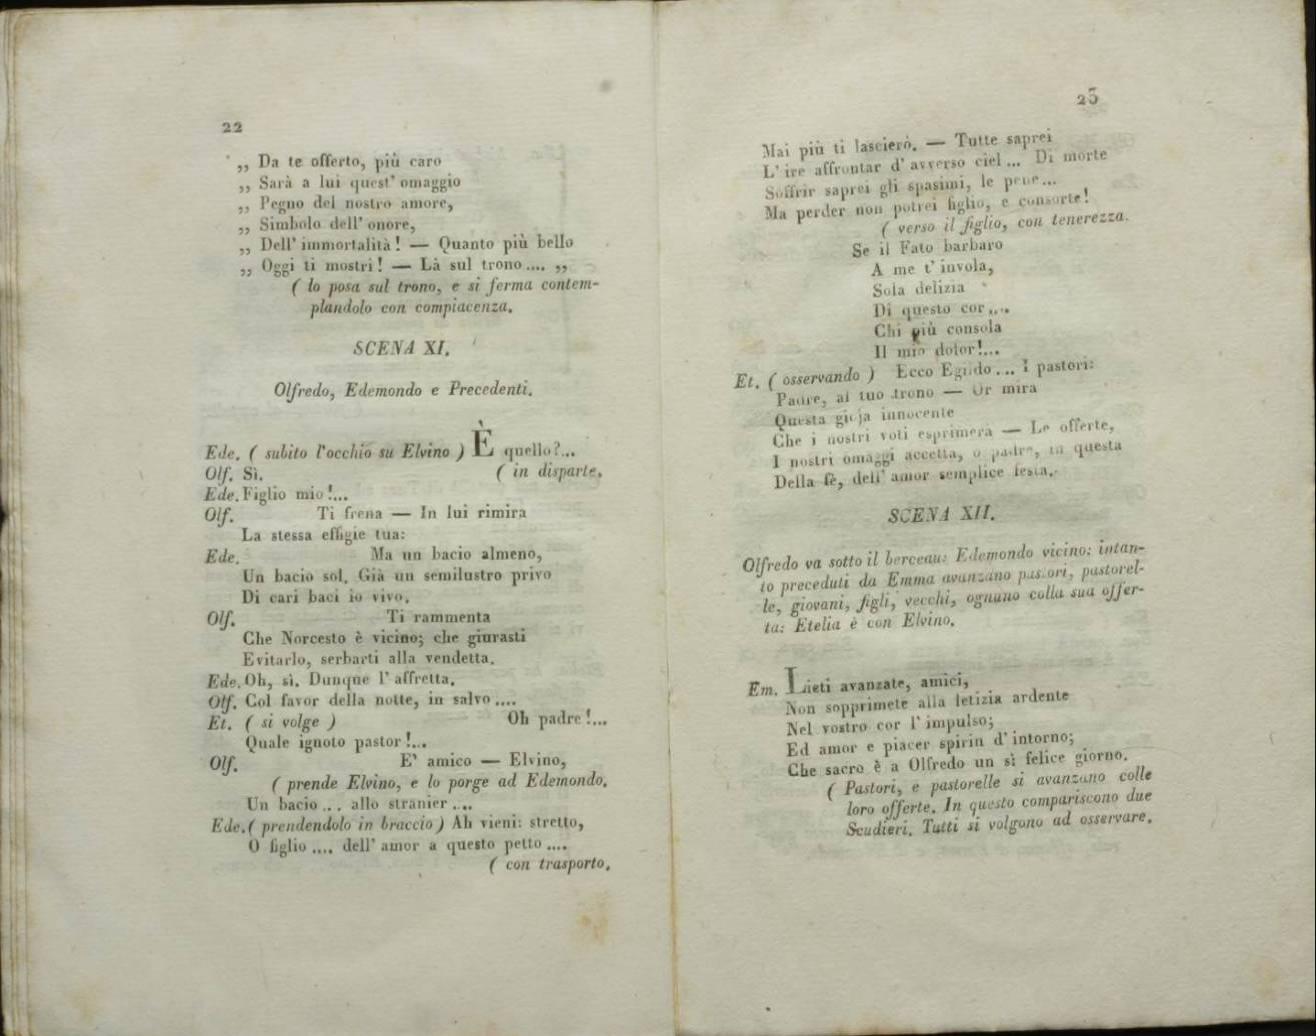 22
„ Da te offerto, più caro
„ Sarà a lui quest' omaggio
„ Pegno del nostro amore,
„ Simbolo dell' onore,
„ Dell' immortalità! — Quanto più bello
„ Oggi ti mostri! — Là sul trono.... „
( lo posa sul trono, e si ferma contem-
plandolo con compiacenza.
SCENA XI.
Olfredo, Edemondo e Precedenti.
Ede. ( subito l'occhio su Elvino ) È quello?...
Olf. Sì. ( in disparte.
Ede. Figlio mio!...
Olf. Ti frena — In lui rimira
La stessa effigie tua:
Ede. Ma un bacio almeno,
Un bacio sol. Già un semilustro privo
Di cari baci io vivo.
Olf. Ti rammenta
Che Norcesto è vicino; che giurasti
Evitarlo, serbarti alla vendetta.
Ede. Oh, sì. Dunque l' affretta.
Olf. Col favor della notte, in salvo ....
Et. ( si volge ) Oh padre!...
Quale ignoto pastor!...
Olf. E' amico — Elvino,
( prende Elvino, e lo porge ad Edemondo.
Un bacio ... allo stranier ....
Ede. ( prendendolo in braccio ) Ah vieni: stretto,
O figlio .... dell' amor a questo petto ....
( con trasporto.
23
Mai più ti lascierò. — Tutte saprei
L' ire affrontar d' avverso ciel ... Di morte
Soffrir saprei gli spasimi, le pene...
Ma perder non potrei figlio, e consorte!
( verso il figlio, con tenerezza.
Se il Fato barbaro
A me t' invola,
Sola delizia
Di questo cor....
Chi più consola
Il mio dolor!...
Et. ( osservando ) Ecco Egildo... I pastori:
Padre, al tuo trono — Or mira
Questa gioja innocente
Che i nostri voti esprimerà — Le offerte,
I nostri omaggi accetta, o padre, in questa
Della fè, dell' amor semplice festa.
SCENA XII.
Olfredo va sotto il berceau: Edemondo vicino: intan-
to preceduti da Emma avanzano pastori, pastorel-
le, giovani, figli, vecchi, ognuno colla sua offer-
ta: Etelia è con Elvino.
Em. Lieti avanzate, amici,
Non sopprimete alla letizia ardente
Nel vostro cor l' impulso;
Ed amor e piacer spirin d' intorno;
Che sacro è a Olfredo un sì felice giorno.
( Pastori, e pastorelle si avanzano colle
loro offerte. In questo compariscono due
Scudieri. Tutti si volgono ad osservare.